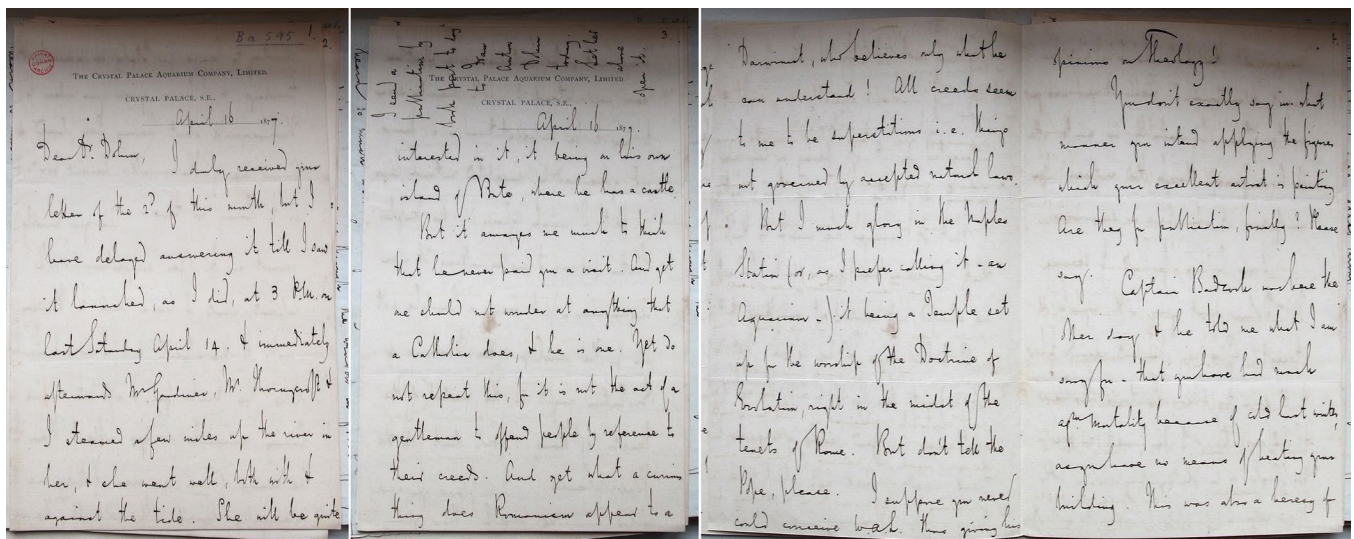 Ba 595
1.
2.
THE CRYSTAL PALACE AQUARIUM COMPANY, LIMITED.
CRYSTAL PALACE, S.E.,
April 16 1877.
Dear Dr. Dohrn,
I duly received your
letter of the 2? of this month, but I
have delayed answering it till I saw
it launched, as I did, at 3 P.M. on
last Saturday April 14. & immediately
afterwards Mr Gardiner, Mr. Thornycroft &
I steamed a few miles up the river in
her, & she went well, both with &
against the tide. She will be quite
3.
I send a
publication by
book post to day
to
THE CRYSTAL PALACE AQUARIUM COMPANY, LIMITED
CRYSTAL PALACE, S.E.,
April 16 1877.
interested in it, it being on his own
island of Bute, where he has a castle.
But it amazes me much to think
that he never paid you a visit. And yet
we should not wonder at anything that
a Catholic does, & he is one. Yet do
not repeat this, for it is not the act of a
gentleman to offend people by reference to
their creeds. And yet what a curious
thing does Romanism appear to a
Darwinist, who believes only what he
can understand! All creeds seem
to me to be superstitions i.e. things
not governed by accepted natural laws.
But I much glory in the Naples
Station (or, as I prefer calling it - an
Aquarium -) it being a Temple set
up for the worship of the Doctrine of
Evolution, right in the midst of the
tenets of Rome. But don't tell the
Pope, please. I suppose you never
could conceive thus giving his
4.
opinions on Theology!
You don't exactly say in what
manner you intend applying the figures
which your excellent artist is painting
Are they for publication, finally? Please
say.
Captain Badcock was here the
other day & he told me what I am
sorry for - that you have had much
mortality because of cold last winter,
as you have no means of heating your
building. This was also a heresy of